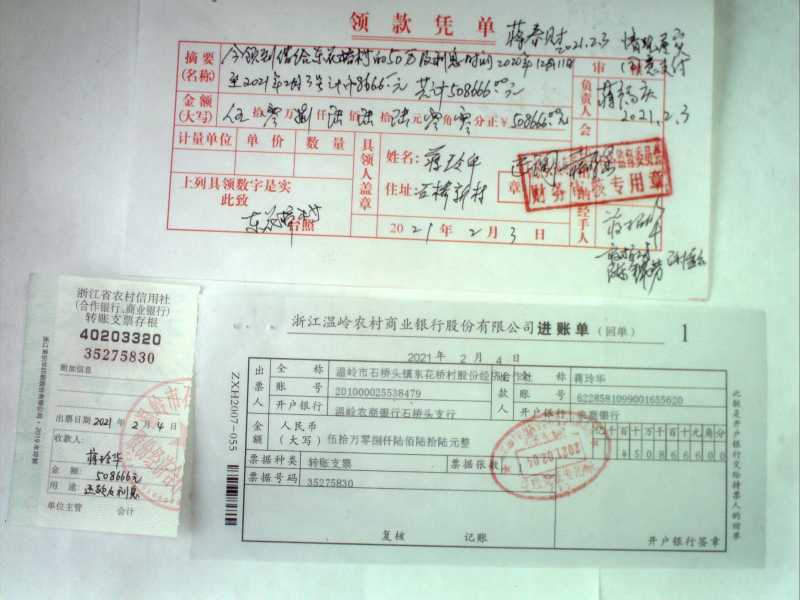 领款凭单
2021.2.3
情况属实
同意支付
摘要
(名称)
今领到借给东花桥村的50万及利息时间2020年12月11日
至2021年2月3号计息8666.元 共计508666.00元
审
负责人
2021.2.3
金额
(大写)
伍拾零万捌仟陆佰陆拾陆元零角零分正¥508666.00元
会
计量单位 单价 数量
具领人盖章
姓名: 蒋玲华
住址: 石桥新村
章
财务审核专用章
经手人
上列具领数字是实
此致
东花桥村
台照
2021年2月3日
浙江省农村信用社
(合作银行、商业银行)
转账支票存根
40203320
35275830
附加信息
出票日期 2021年2月4日
收款人:
蒋玲华
金额: 508666元
用途: 还款及利息
单位主管 会计
浙江温岭农村商业银行股份有限公司 进账单 (回单) 1
2021年2月4日
ZXH2007-055
出票人
全称 温岭市石桥头镇东花桥村股份经济合作社
账号 201000025538479
开户银行 温岭农商银行石桥头支行
全称 蒋玲华
账号 6228581099001655620
开户银行
金额
人民币
(大写) 伍拾万零捌仟陆佰陆拾陆元整
亿千百十万千百十元角分
¥50866600
票据种类 转账支票 票据张数
票据号码 35275830
复核 记账
开户银行签章
此联是开户银行交给持票人的回单